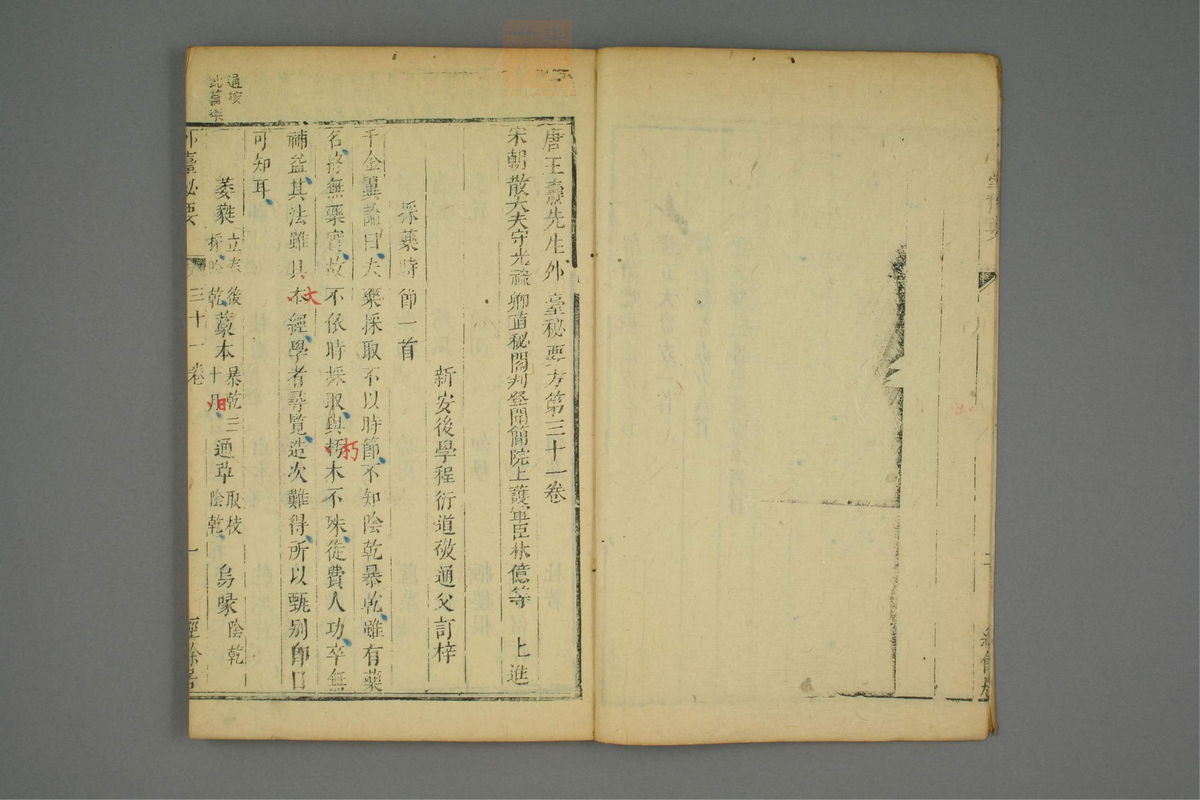 唐王燾先生外臺秘要方第三十一卷
宋朝散大夫守光祿卿直秘閣判登聞簡院上護軍臣林億等 上進
新安後學程衍道敬通父訂梓
採藥時節一首
千金翼論曰夫藥採取不以時節不知陰乾暴乾雖有藥
名終無藥實故不依時採取與朽木不殊徒費人功卒無
朽
補益其法雖具本經學者尋覽造次難得所以甄别即日
大
可知耳
萎蕤 立春後 採陰乾 藁本 暴乾三 十日 通草 取枝 陰乾 烏喙 陰乾
月
外臺秘要 三十一卷 一 經餘居